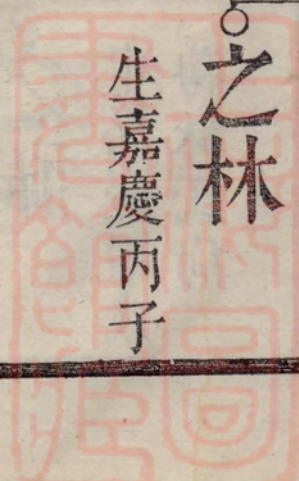 之林
生嘉慶丙子